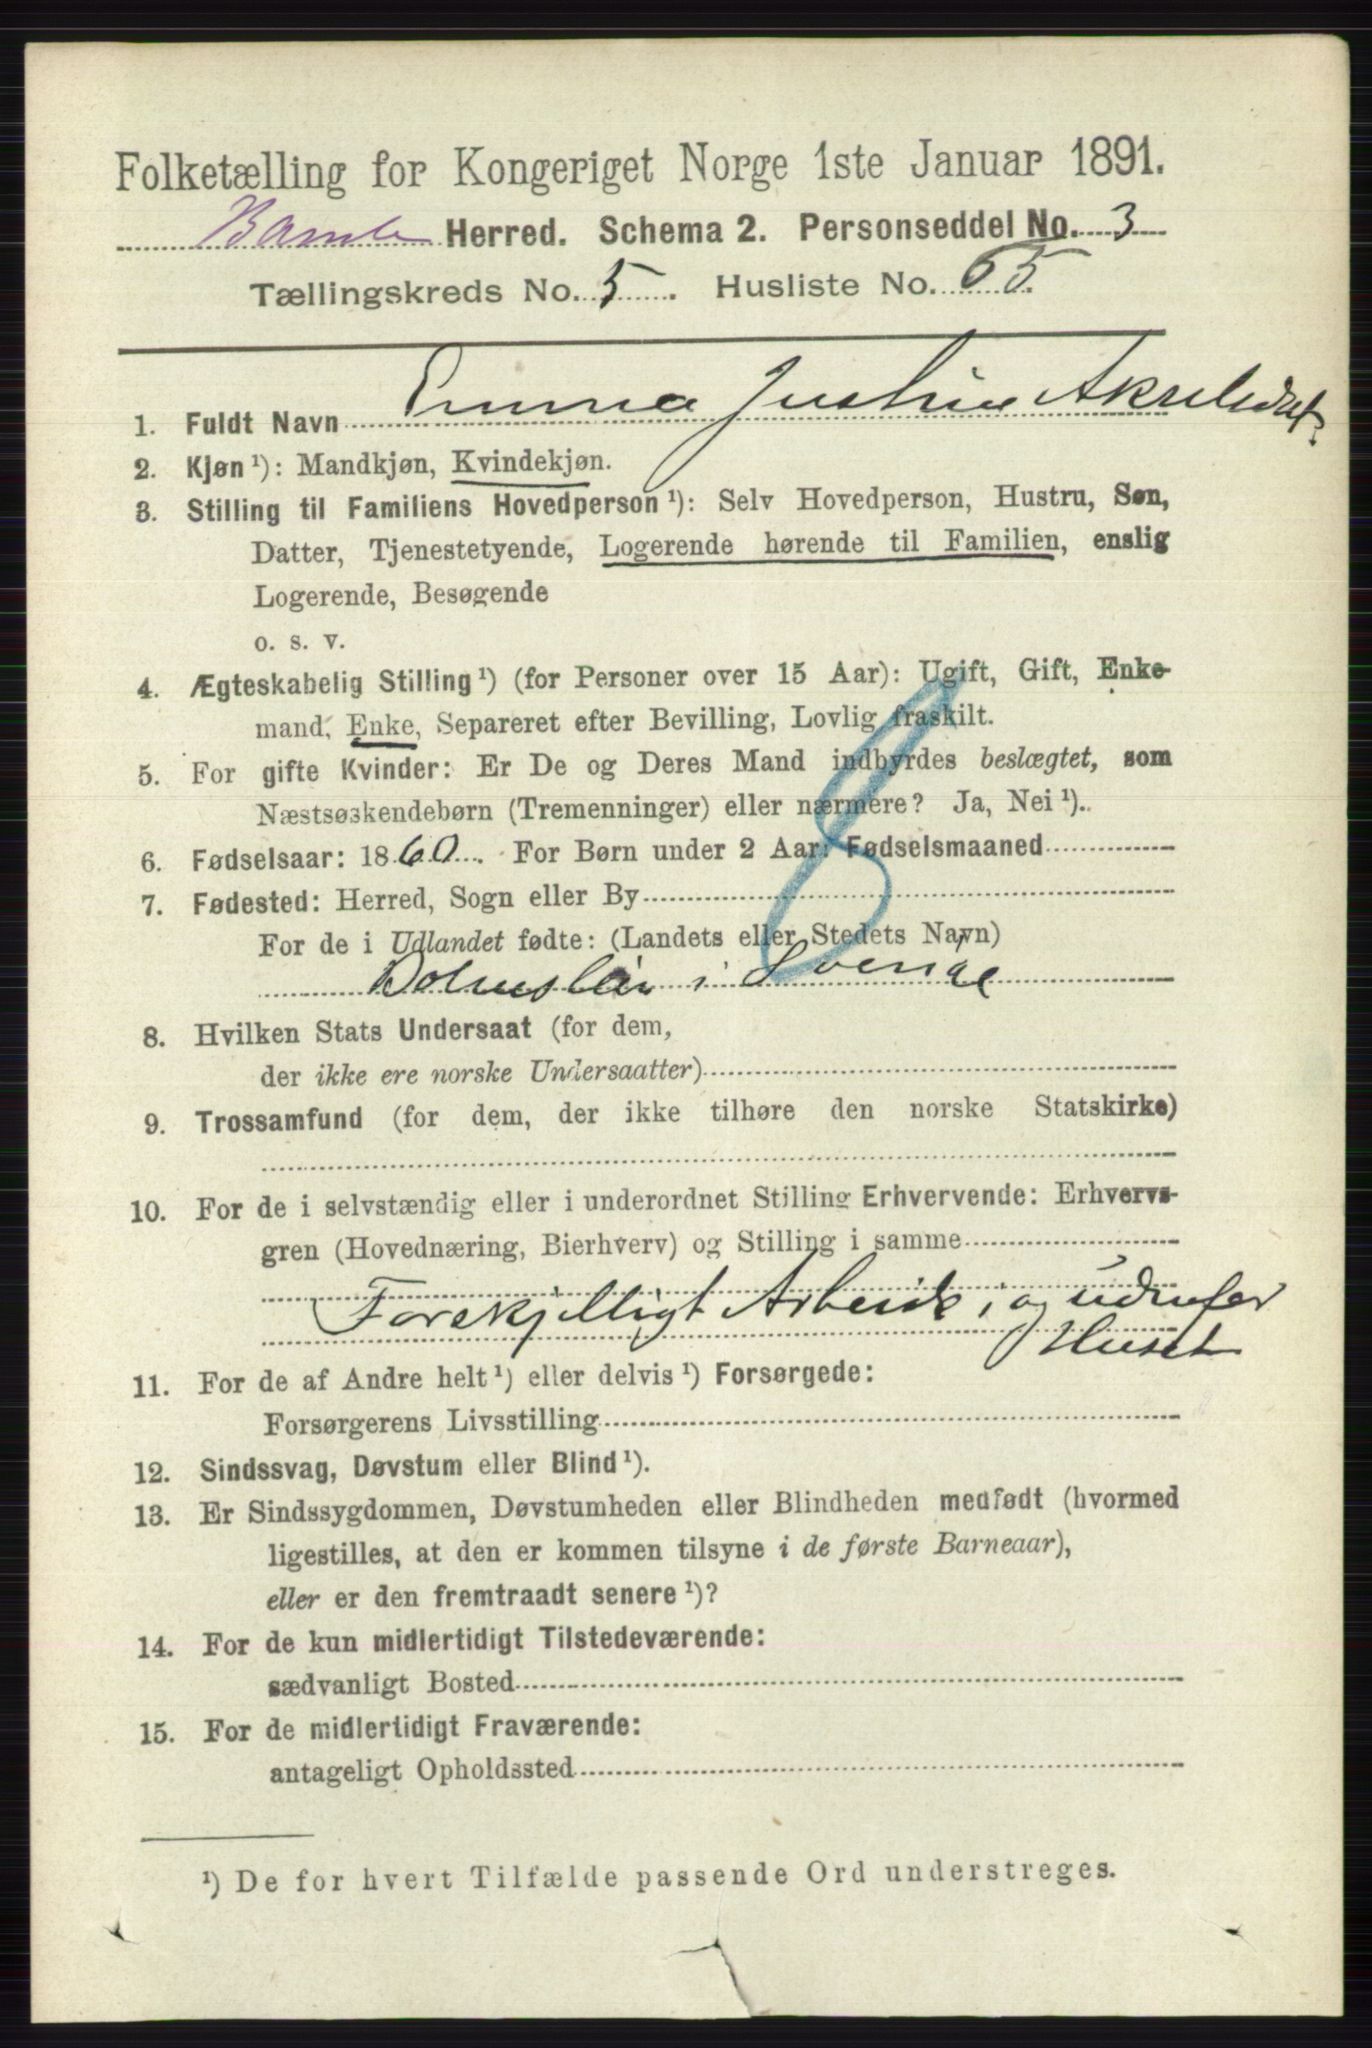 Folketælling for Kongeriget Norge 1ste Januar 1891.
Bamle Herred. Schema 2. Personseddel No. 3
Tællingskreds No. 5. Husliste No. 65.
1. Fuldt Navn Emma Justine Akselsdat
2. Kjøn ¹): Mandkjøn, Kvindekjøn.
3. Stilling til Familiens Hovedperson ¹): Selv Hovedperson, Hustru, Søn,
Datter, Tjenestetyende, Logerende hørende til Familien, enslig
Logerende, Besøgende
o. s. v.
4. Ægteskabelig Stilling ¹) (for Personer over 15 Aar): Ugift, Gift, Enke-
mand, Enke, Separeret efter Bevilling, Lovlig fraskilt.
5. For gifte Kvinder: Er De og Deres Mand indbyrdes beslægtet, som
Næstsøskendebørn (Tremenninger) eller nærmere? Ja, Nei ¹).
6. Fødselsaar: 1860. For Børn under 2 Aar: Fødselsmaaned
7. Fødested: Herred, Sogn eller By
For de i Udlandet fødte: (Landets eller Stedets Navn)
Bohuslän i Sverige
8. Hvilken Stats Undersaat (for dem,
der ikke ere norske Undersaatter)
9. Trossamfund (for dem, der ikke tilhøre den norske Statskirke)
10. For de i selvstændig eller i underordnet Stilling Erhvervende: Erhvervs-
gren (Hovednæring, Bierhverv) og Stilling i samme
Forskjelligt Arbeide i og udenfor
Huset
11. For de af Andre helt ¹) eller delvis ¹) Forsørgede:
Forsørgerens Livsstilling
12. Sindssvag, Døvstum eller Blind ¹).
13. Er Sindssygdommen, Døvstumheden eller Blindheden medfødt (hvormed
ligestilles, at den er kommen tilsyne i de første Barneaar),
eller er den fremtraadt senere ¹)?
14. For de kun midlertidigt Tilstedeværende:
sædvanligt Bosted
15. For de midlertidigt Fraværende:
antageligt Opholdssted
¹) De for hvert Tilfælde passende Ord understreges.